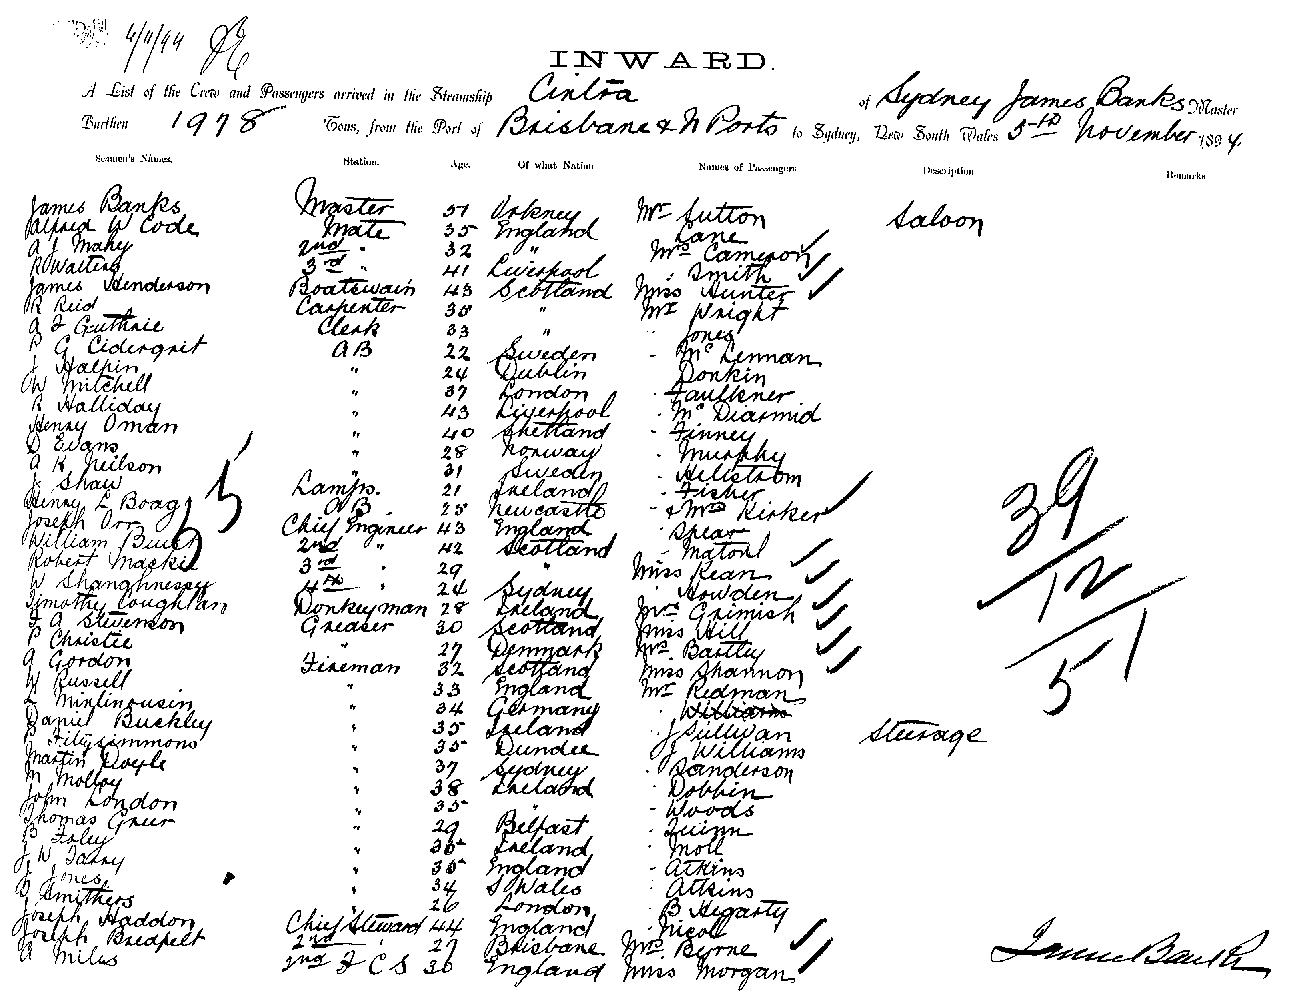 6/11/94
INWARD.
A List of the Crew and Passengers arrived in the Steamship Cintra of Sydney James Banks Master
Burthen 1978 Tons, from the Port of Brisbane & N Ports to Sydney, New South Wales 5th November 1894
Seamen's Names. Station. Age. Of what Nation Names of Passengers Description Remarks
James Banks Master 51 Orkney Mr Sutton Saloon
Alfred W Code Mate 35 England Lane
A J Mahy 2nd " 32 " Mrs Cameron
R Walters 3rd " 41 Liverpool " Smith
James Henderson Boatswain 43 Scotland Miss Hunter
R Reid Carpenter 35 " Mr Wright
A F Guthrie Clerk 33 " Jones
P G Cederqvist AB 22 Sweden " McLennan
J Halpin " 24 Dublin Donkin
W Mitchell " 37 London " Faulkner
R Halliday " 43 Liverpool " McDiarmid
Henry Oman " 40 Shetland " Finney
D Evans " 28 Norway " Murphy
A K Neilson " 31 Sweden " Hellstrom
J Shaw Lamps. 21 Ireland " Fisher
Henry L Boag AB 25 Newcastle " & Mrs Kirker
Joseph Orr Chief Engineer 43 England " Spear
William 2nd " 42 Scotland "
Robert Mackie 3rd " 29 " Miss Kean
W Shanghnessy 4th " 24 Sydney " Howden
Timothy Coughlan Donkeyman 28 Ireland Mrs Grimish
F A Stevenson Greaser 30 Scotland Miss Hill
P Christie " 27 Denmark Mrs Bartley
A Gordon Fireman 32 Scotland Miss Shannon
W Russell " 33 England Mr Redman
L " 34 Germany " Williams
Daniel Buckley " 35 Ireland J Sullivan Steerage
Fitzsimmons " 35 Dundee J Williams
Martin Doyle " 37 Sydney " Sanderson
M Molloy " 38 Ireland " Dobbin
John London " 35 " " Woods
Thomas Greer " 29 Belfast " Quinn
P Foley " 35 Ireland " Moll
J W Tarry " 35 England " Atkins
J Jones " 34 S Wales " Atkins
G Smithers " 26 London " B Hegarty
Joseph Haddon Chief Steward 44 England " Nicol
Joseph Bredfelt 2nd " 27 Brisbane Mrs Byrne
A Miles 2nd F C S 36 England Miss Morgan
55
39
12
51
James Banks